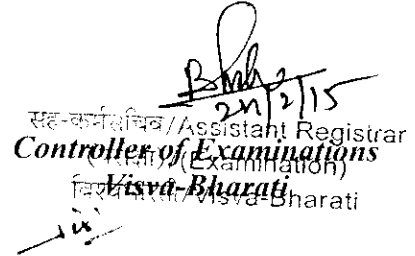 24/2/15
सह-कर्मसचिव/Assistant Registrar
Controller of Examinations
(परीक्षा)/(Examination)
Visva-Bharati
विश्वभारती/Visva-Bharati